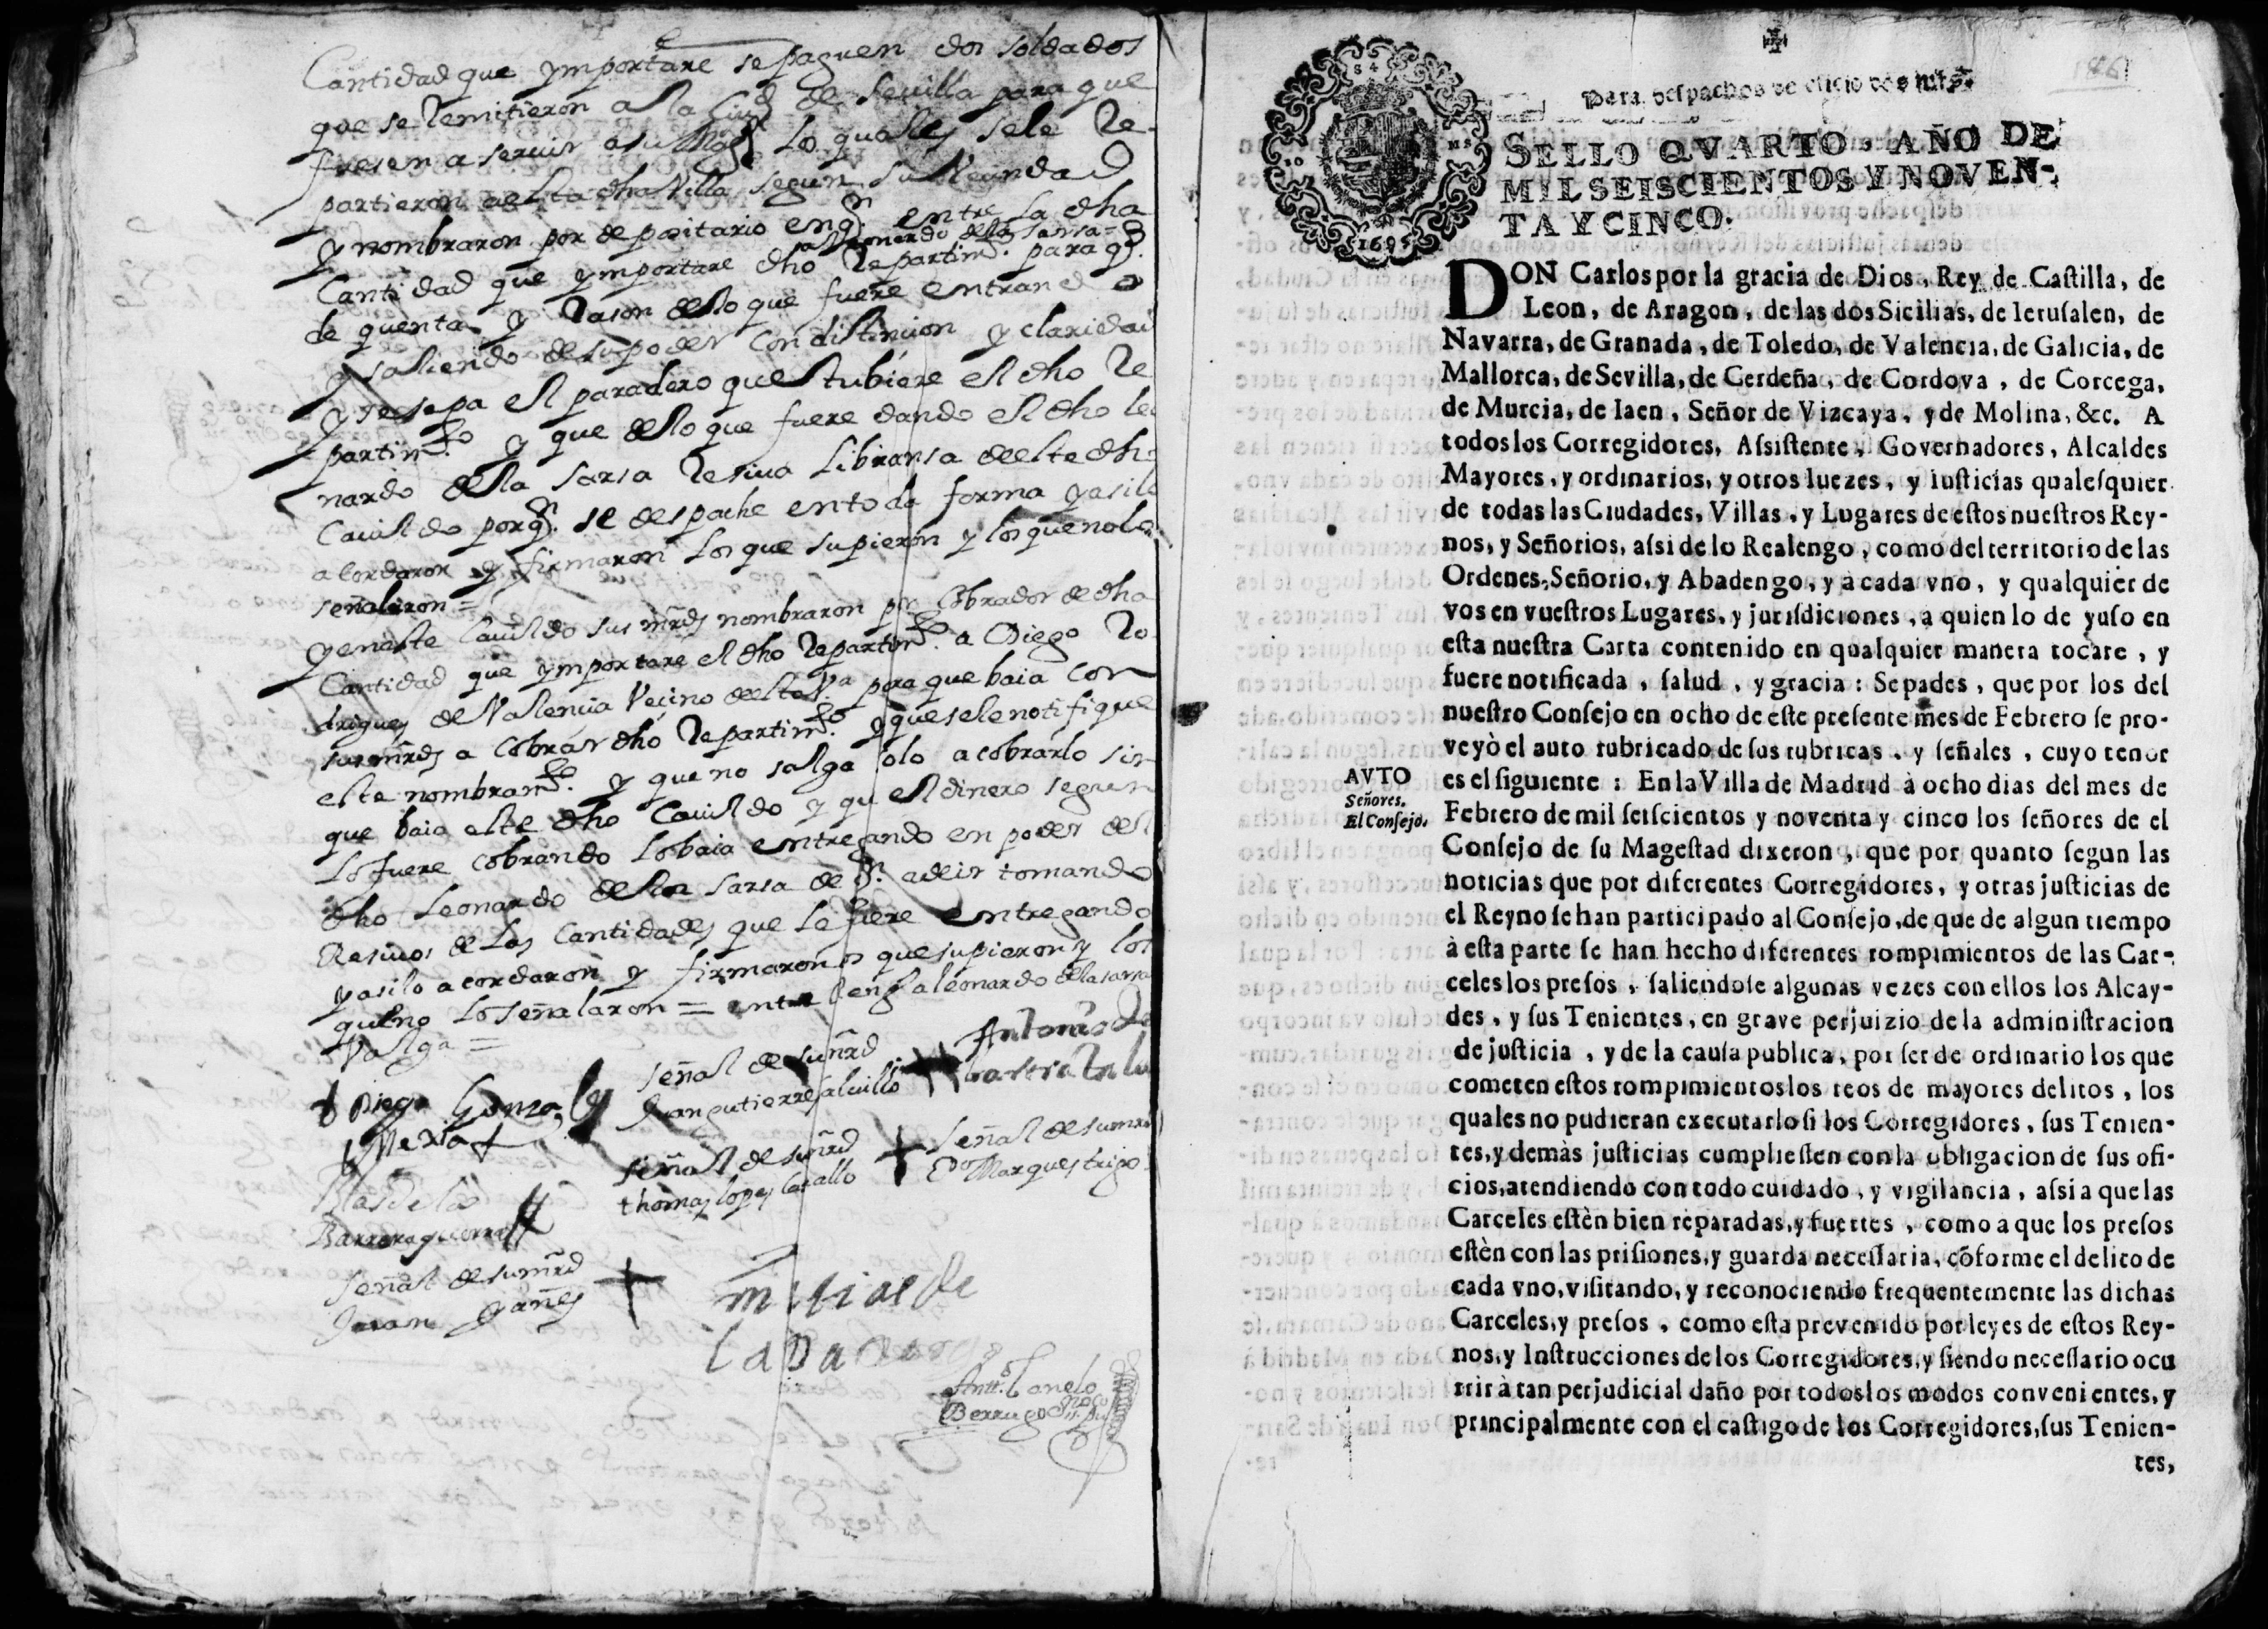 Cantidad que ymportare se paguen dos soldados
que se Remitieron a la Ciud de Sevilla para que
fuesen a servir a su Magd Lo quales se le Re-
partieron a esta dha Villa segun su Vecindad
y nombraron por depositario en qn entre la dha
a leonardo de la sarsa =
Cantidad que ymportare dho Repartimto. para qe.
de quenta y Rason de lo que fuere entrando
y saliendo de su poder Con distincion y claridad
y se sepa el paradero que tubiere el dho Re
partimto. y que de lo que fuere dando el dho leo
nardo de la sarsa Resiva Libransa de este dho
Cavildo por qn. se despache en toda forma y asilo
acordaron y firmaron los que supieron y los que no lo
señalaron =
y en este Cavildo sus mrds nombraron por Cobrador de dha
Cantidad que ymportare el dho Repartimto. a Diego Ro
drigues de Valencia Vecino de esta Va para que baia con
sus mrds a Cobrar dho Repartimto. y que se le notifique
este nombramto. y que no salga solo a cobrarlo sin
que baia este dho Cavildo y que el dinero segun
Lo fuere cobrando Lo baia entregando en poder del
dho Leonardo de la sarsa de qn. a de ir tomando
Resivos de Las Cantidades que Le fuere entregando
y asilo acordaron y firmaron los que supieron y los
que no Lo señalaron = entre Rengs a leonardo de la sarsa
Valga =
Diego Gonzales
Mexia
señal de su mrd
Juan gutierres alcuillo
Antonio de
señal de su mrd
thomas lopes Cavallo
señal de su mrd
Marques trigo
Blas de la
Barrera guerra
señal de su mrd
Juan Yañes
matias de
la barrera
Antto. Canelo
Berrugo
Para despachos de oficio dos mrs.
SELLO QVARTO, AÑO DE
MIL SEISCIENTOS Y NOVEN-
TA Y CINCO.
1695
DON Carlos por la gracia de Dios, Rey de Castilla, de
Leon, de Aragon, de las dos Sicilias, de Ierusalen, de
Navarra, de Granada, de Toledo, de Valencia, de Galicia, de
Mallorca, de Sevilla, de Cerdeña, de Cordova, de Corcega,
de Murcia, de Iaen, Señor de Vizcaya, y de Molina, &c. A
todos los Corregidores, Assistente, Governadores, Alcaldes
Mayores, y ordinarios, y otros Iuezes, y Iusticias qualesquier
de todas las Ciudades, Villas, y Lugares de estos nuestros Rey-
nos, y Señorios, assi de lo Realengo, como del territorio de las
Ordenes, Señorio, y Abadengo, y à cada vno, y qualquier de
vos en vuestros Lugares, y jurisdiciones, a quien lo de yuso en
esta nuestra Carta contenido en qualquier manera tocare, y
fuere notificada, salud, y gracia: Sepades, que por los del
nuestro Consejo en ocho de este presente mes de Febrero se pro-
veyò el auto rubricado de sus rubricas, y señales, cuyo tenor
AVTO
Señores.
El Consejo.
es el siguiente: En la Villa de Madrid à ocho dias del mes de
Febrero de mil seiscientos y noventa y cinco los señores de el
Consejo de su Magestad dixeron, que por quanto segun las
noticias que por diferentes Corregidores, y otras justicias de
el Reyno se han participado al Consejo, de que de algun tiempo
à esta parte se han hecho diferentes rompimientos de las Car-
celes los presos, saliendose algunas vezes con ellos los Alcay-
des, y sus Tenientes, en grave perjuizio de la administracion
de justicia, y de la causa publica, por ser de ordinario los que
cometen estos rompimientos los reos de mayores delitos, los
quales no pudieran executarlo si los Corregidores, sus Tenien-
tes, y demàs justicias cumpliessen con la obligacion de sus ofi-
cios, atendiendo con todo cuidado, y vigilancia, assi a que las
Carceles estèn bien reparadas, y fuertes, como a que los presos
estèn con las prisiones, y guarda necessaria, cõforme el delito de
cada vno, visitando, y reconociendo frequentemente las dichas
Carceles, y presos, como esta prevenido por leyes de estos Rey-
nos, y Instrucciones de los Corregidores, y siendo necessario ocu
rrir à tan perjudicial daño por todos los modos convenientes, y
principalmente con el castigo de los Corregidores, sus Tenien-
tes,